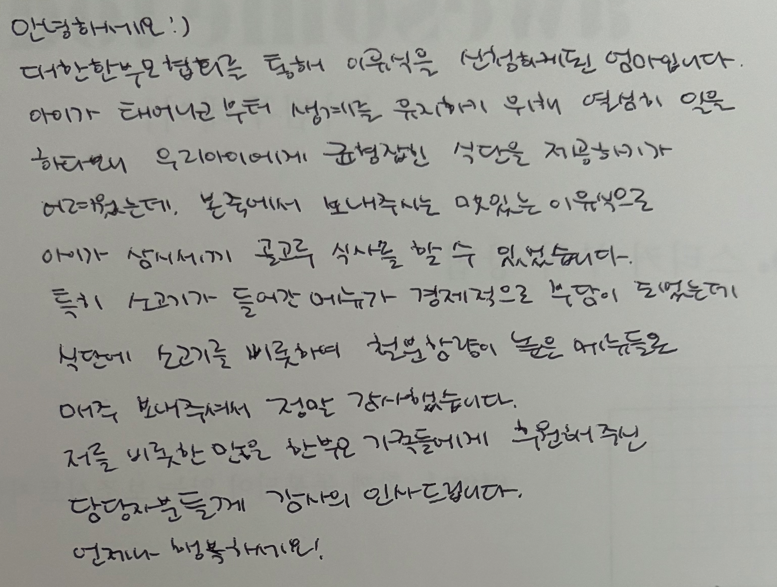 안녕하세요:)
대한한부모협회를 통해 이유식을 신청하게된 엄마입니다.
아이가 태어나고부터 생계를 유지하기 위해 열심히 일을
하다보니 우리아이에게 균형잡힌 식단을 제공하기가
어려웠는데, 본죽에서 보내주시는 맛있는 이유식으로
아이가 삼시세끼 골고루 식사를 할 수 있었습니다.
특히 소고기가 들어간 메뉴가 경제적으로 부담이 되었는데
식단에 소고기를 비롯하여 철분함량이 높은 메뉴들로
매주 보내주셔서 정말 감사했습니다.
저를 비롯한 많은 한부모 가족들에게 후원해주신
담당자분들께 감사의 인사드립니다.
언제나 행복하세요!